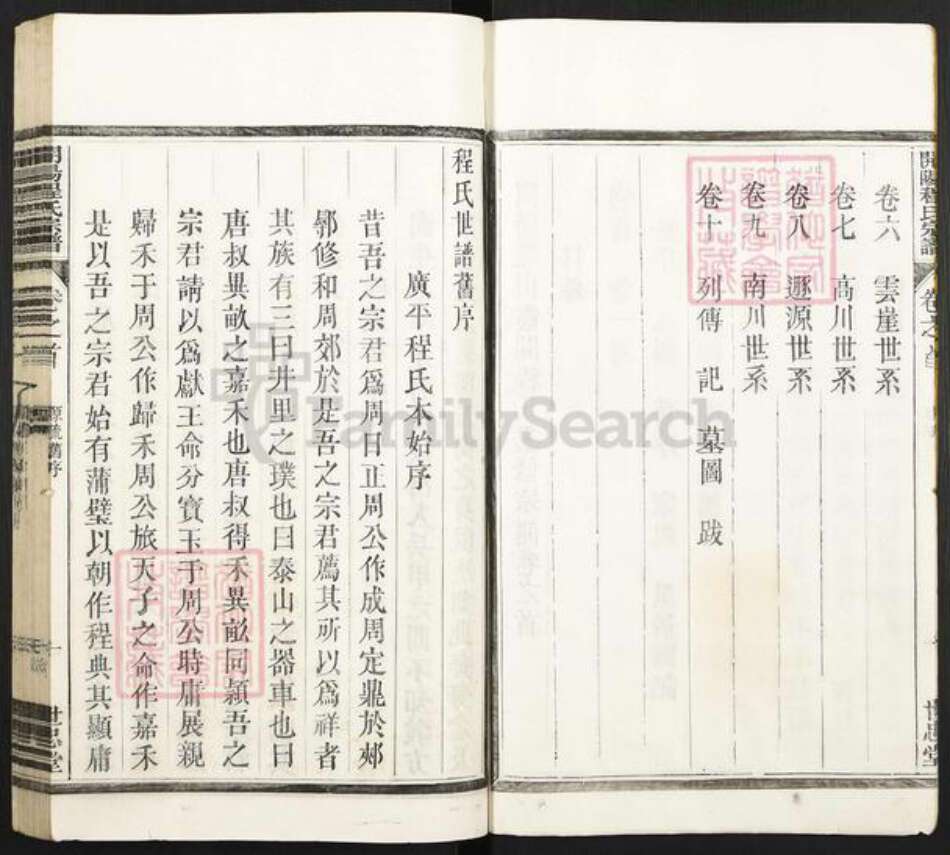 卷六 雲崖世系
卷七 高川世系
卷八 遯源世系
卷九 南川世系
卷十 列傳 記 墓圖 跋
程氏世譜舊序
廣平程氏本始序
昔吾之宗君爲周日正周公作成周定鼎於郟
鄏修和周郊於是吾之宗君薦其所以爲祥者
其族有三曰井里之璞也曰泰山之器車也曰
唐叔異畝之嘉禾也唐叔得禾異畝同穎吾之
宗君請以爲獻王命分寶玉于周公時庸展親
歸禾于周公作歸禾周公旅天子之命作嘉禾
是以吾之宗君始有蒲璧以朝作程典其顯庸
世思堂
FamilySearch